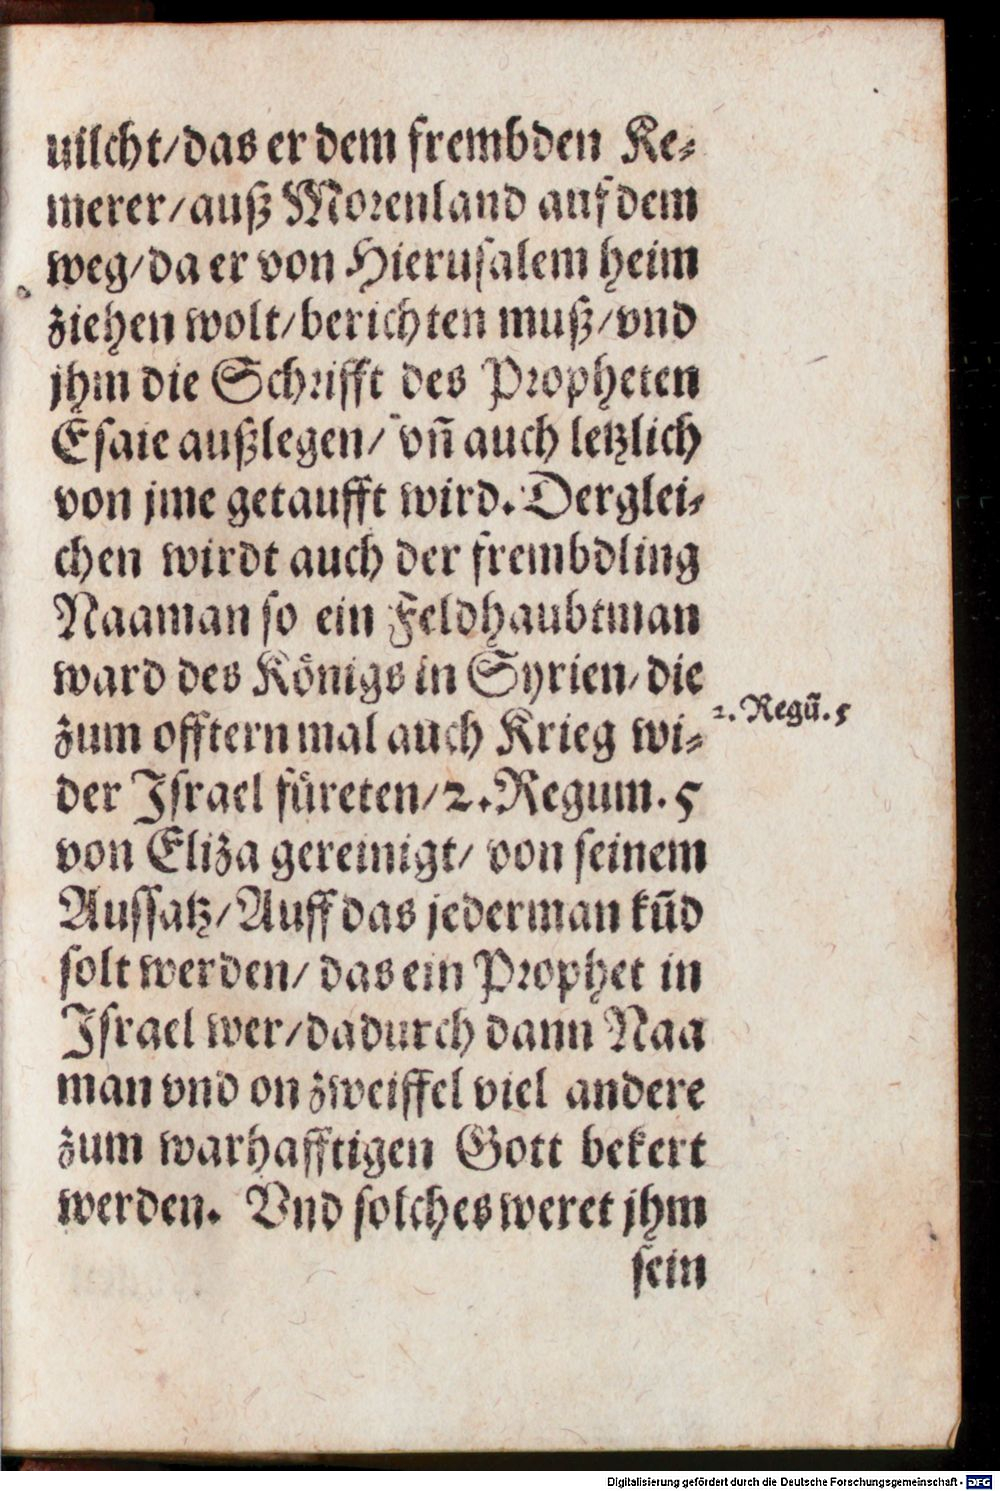 uilcht/das er dem frembden Ke⸗
merer/auß Morenland auf dem
weg/da er von Hierusalem heim
ziehen wolt/berichten muß/vnd
jhm die Schrifft des Propheten
Esaie außlegen/ vñ auch letzlich
von jme getaufft wird. Derglei⸗
chen wirdt auch der frembdling
Naaman so ein Feldhaubtman
ward des Königs in Syrien/die
zum offtern mal auch Krieg wi⸗
2. Regū. 5
der Israel füreten/2. Regum. 5
von Eliza gereinigt/ von seinem
Aussatz/Auff das jederman kūd
solt werden/ das ein Prophet in
Israel wer/dadurch dann Naa
man vnd on zweiffel viel andere
zum warhafftigen Gott bekert
werden. Vnd solches weret jhm
sein
Digitalisierung gefördert durch die Deutsche Forschungsgemeinschaft - DFG